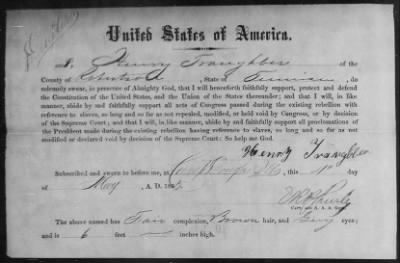 United States of America.
I, Henry Traughber of the
County of Robertson, State of Tennessee, do
solemnly swear, in presence of Almighty God, that I will henceforth faithfully support, protect and defend
the Constitution of the United States, and the Union of the States thereunder; and that I will, in like
manner, abide by and faithfully support all acts of Congress passed during the existing rebellion with
reference to slaves, so long and so far as not repealed, modified, or held void by Congress, or by decision
of the Supreme Court; and that I will, in like manner, abide by and faithfully support all proclamations of
the President made during the existing rebellion having reference to slaves, so long and so far as not
modified or declared void by decision of the Supreme Court. So help me God.
Henry Traughber
Subscribed and sworn to before me, at day
of May, A. D. 186
Capt. and A. A. A. Gen.
The above named has Fair complexion, Brown hair, and Grey eyes;
and is 6 feet inches high.